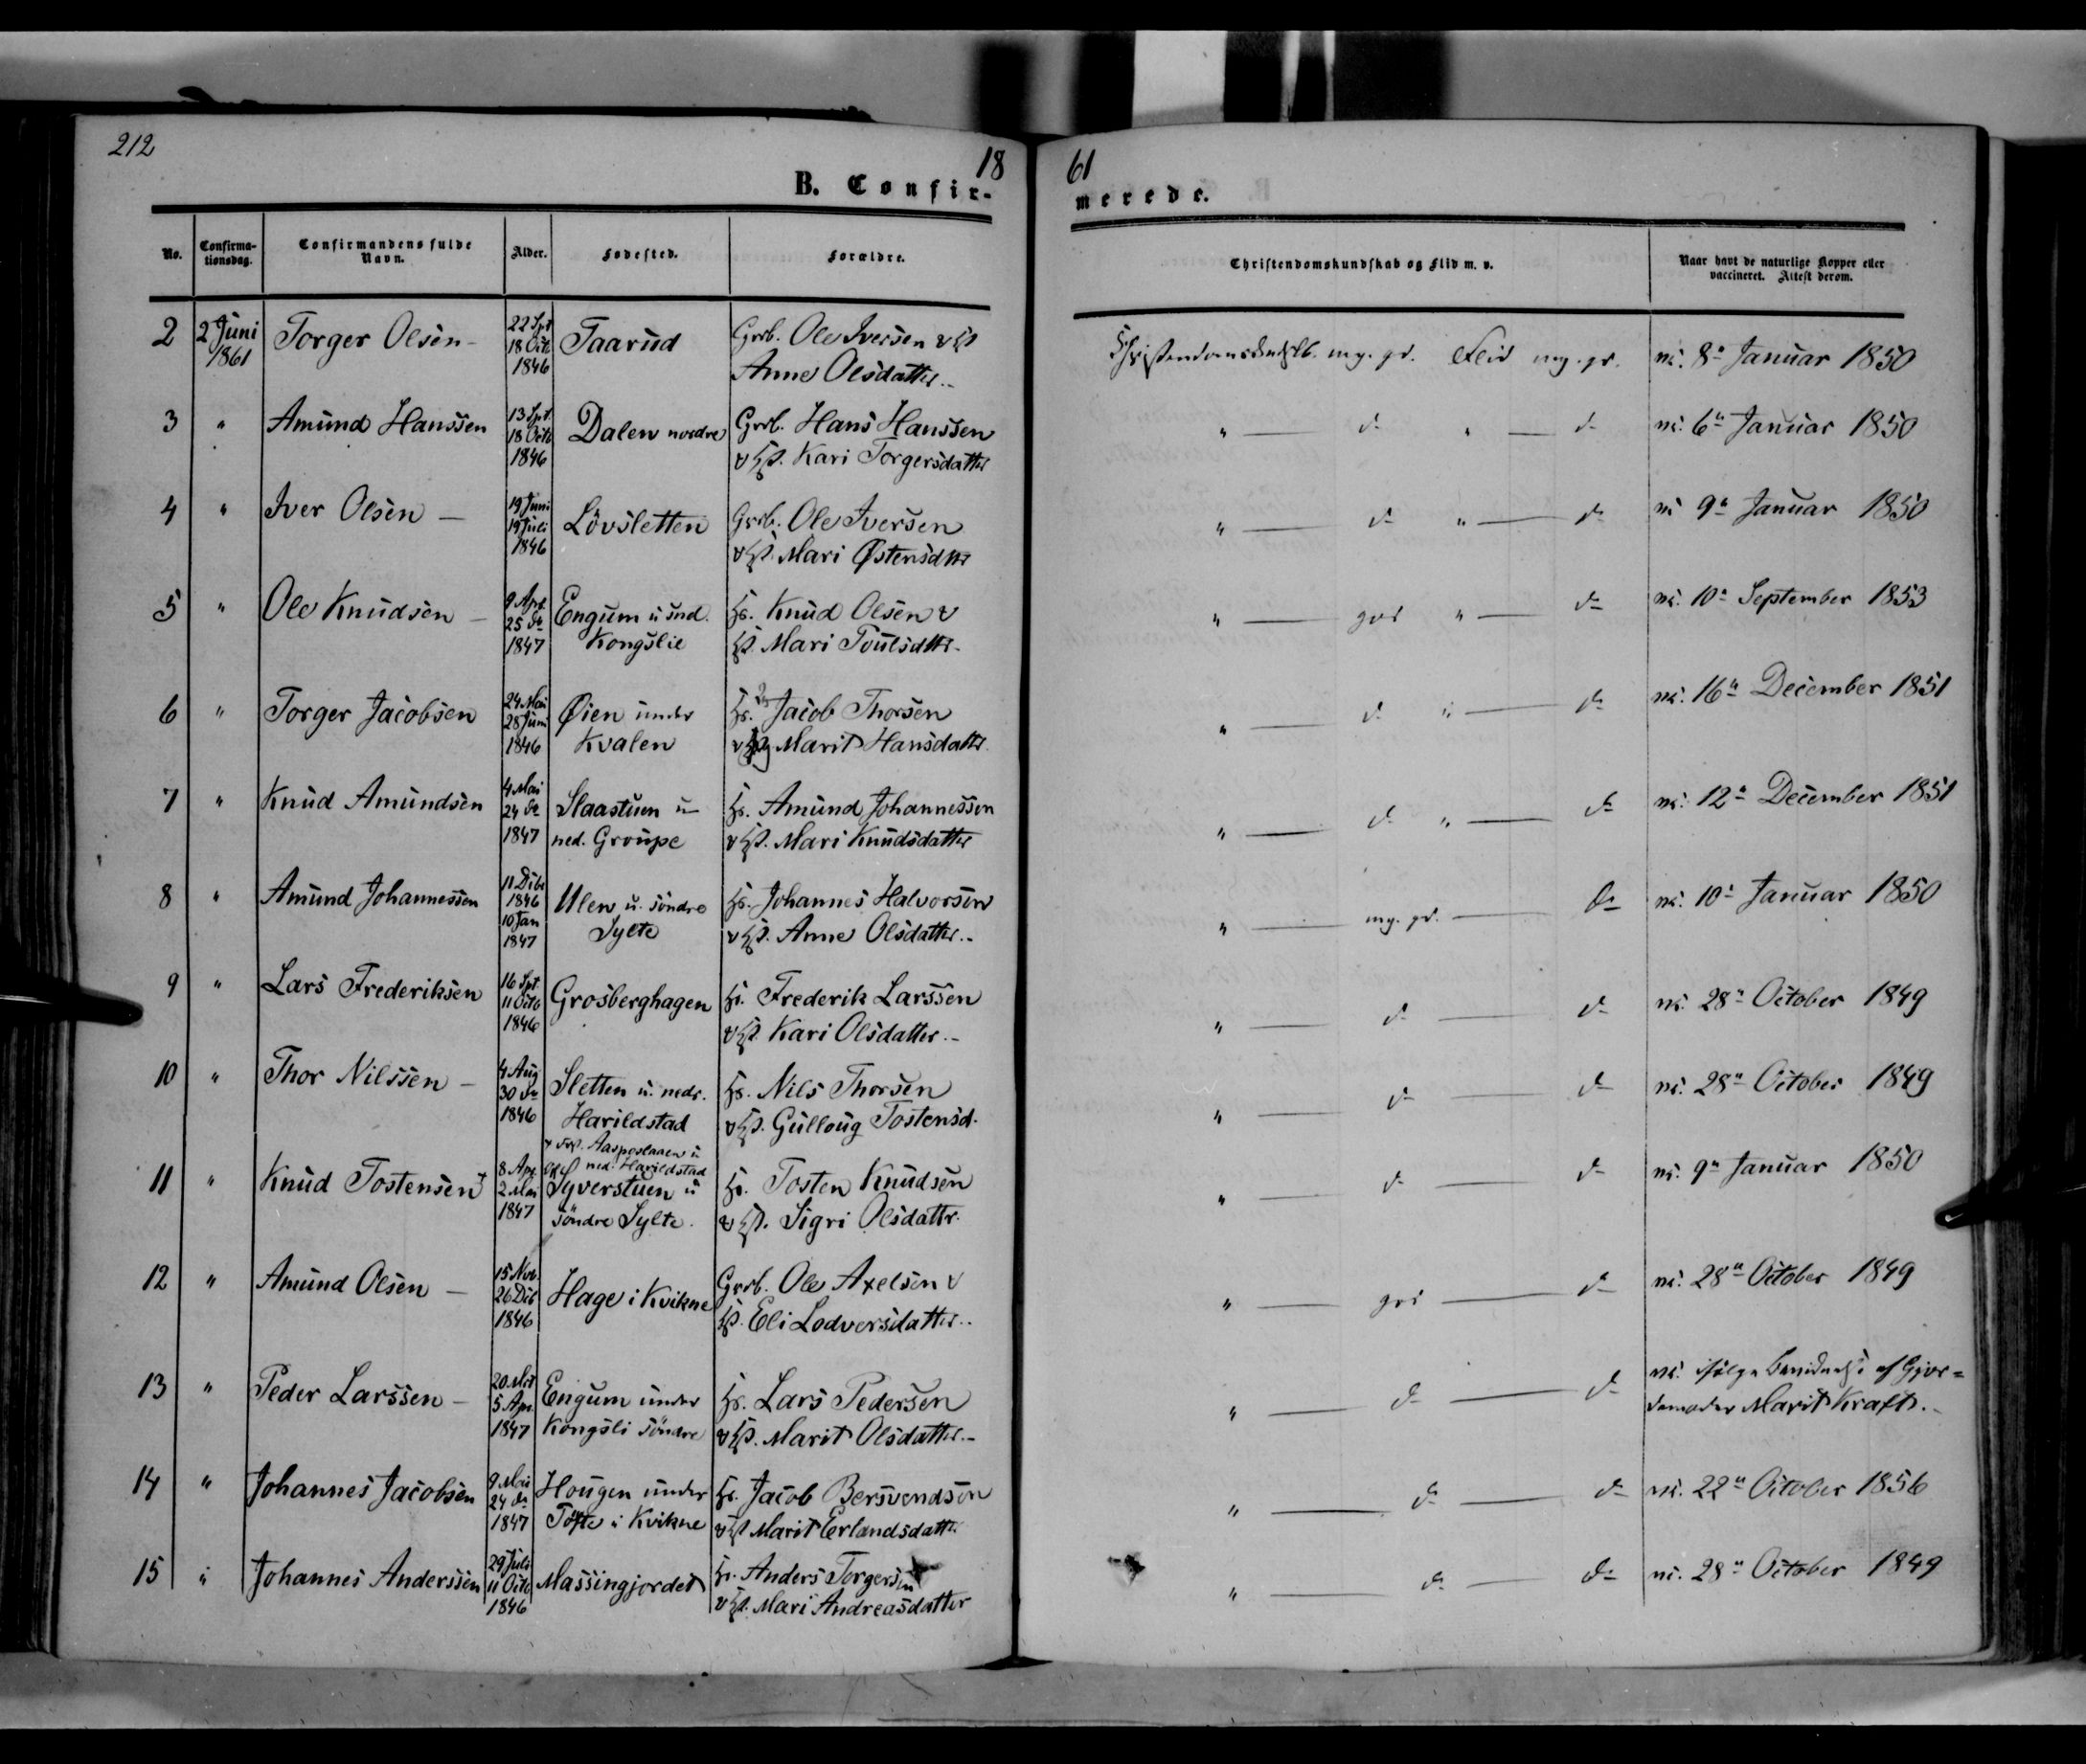 212
18
61
B. Confir-
merede.
No.
Confirma-
tionsdag.
Confirmandens fulde
Navn.
Alder.
Fødested.
Forældre.
Christendomskundskab og Flid m. v.
Naar havt de naturlige Kopper eller
vaccineret. Attest derom.
2 2 Juni 1861 Torger Olsen - 22 Spt 18 Octb 1846 Taarud Grb. Ole Iversen & Hst Anne Olsdatter.- Christendomskndskb. mg. gd. Flid mg. gd. vc. 8de Januar 1850
3 " Amund Hanssen 13 Spt. 18 Octb 1846 Dalen nordre Grb. Hans Hanssen & Hst. Kari Torgersdatter " — do " — do vc. 6te Januar 1850
4 " Iver Olsen — 19 Juni 19 Juli 1846 Lövsletten Grb. Ole Iversen & Hst. Mari Østensdttr " — do " — do vc 9de Januar 1850
5 " Ole Knudsen — 9 Apr. 25 do 1847 Engum u. sønd. Kongslie Hs. Knud Olsen & Hst. Mari Poulsdttr. " — god " — do vc. 10de September 1853
6 " Torger Jacobsen 24 Mai 28 Juni 1846 Øien under Kvalen Hs. Jacob Thorsen & Marit Hansdatter. " — do " — do vc. 16de December 1851
7 " Knud Amundsen 4 Mai 24 do 1847 Slaastuen u ned. Groupe Hs. Amund Johannessen & Hst. Mari Knudsdatter " — do " — do vc. 12te December 1851
8 " Amund Johannessen 11 Dcbr 1846 10 Jan 1847 Ulen u. söndre Sylte Hs. Johannes Halvorsen & Hst. Anne Olsdatter.- " — mg. gd. — do vc. 10de Januar 1850
9 " Lars Frederiksen 16 Spt. 11 Octb 1846 Grosberghagen Hs. Frederik Larssen & Hst. Kari Olsdatter.- " — do — do vc. 28de October 1849
10 " Thor Nilssen — 4 Aug 30 do 1846 Sletten u. nedr. Harildstad Hs. Nils Thorsen & Hst. Gulloug Tostensd. " — do — do vc. 28de October 1849
11 " Knud Tostensen + 8 Apr. 2 Mai 1847 Syverstuen u söndre Sylte. Hs. Tosten Knudsen & Hst. Sigri Olsdattr. " — do — do vc. 9de Januar 1850
ned. Harildstad
12 " Amund Olsen — 15 Nvb. 26 Dcb 1846 Hage i Kvikne Grb. Ole Axelsen & Hst. Eli Lodversdatter.. " — god — do vc. 28de October 1849
13 " Peder Larssen — 20 Mrt 5 Apr. 1847 Engum under Kongsli söndre Hs. Lars Pedersen & Hst. Marit Olsdatter.- " — do — do vc. ifølge af Gjor=
demoder Marit Kraft.-
14 " Johannes Jacobsen 9 Mai 24 do 1847 Hougen under Tofte i Kvikne Hs. Jacob Bersvendsen & Hst Marit Erlandsdatter " — do — do vc. 22de October 1856
15 " Johannes Anderssen 29 Juli 11 Octb 1846 Massingjordet Hs. Anders Torgersen & Hst. Mari Andreasdatter " — do — do vc. 28de October 1849